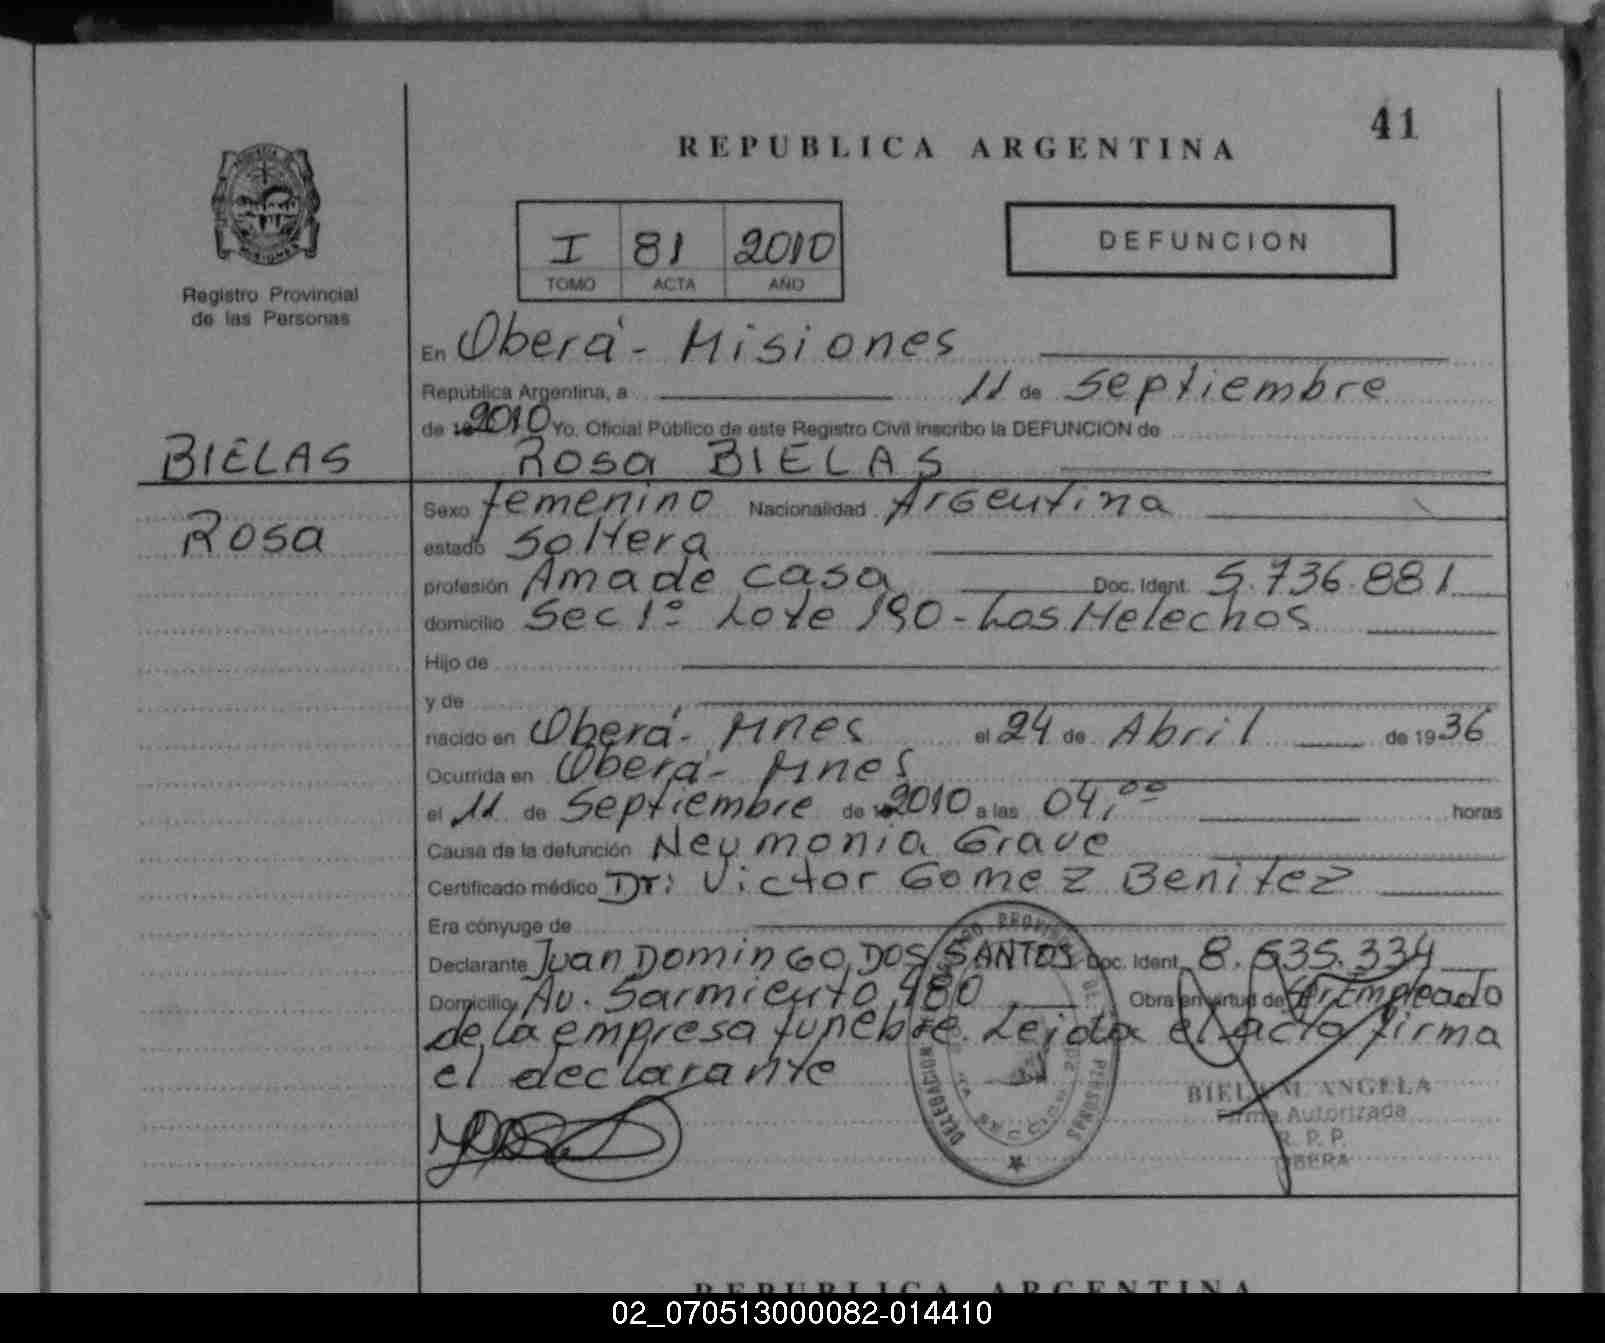 41
REPUBLICA ARGENTINA
I 81 2010
TOMO ACTA AÑO
DEFUNCION
Registro Provincial
de las Personas
En Oberá - Misiones
República Argentina, a 11 de Septiembre
de 2010 Yo. Oficial Público de este Registro Civil inscribo la DEFUNCION de
BIELAS Rosa BIELAS
Rosa
Sexo femenino Nacionalidad Argentina
estado Soltera
profesión Ama de casa Doc. Ident. 5.736.881
domicilio Sec 1º Lote 190 - Los Helechos
Hijo de
y de
nacido en Oberá - Mnes el 24 de Abril de 1936
Ocurrida en Oberá - Mnes
el 11 de Septiembre de 2010 a las 04,00 horas
Causa de la defunción Neumonia Grave
Certificado médico Dr: Victor Gomez Benitez
Era cónyuge de
Declarante Juan Domingo DOS SANTOS Doc. Ident. 8.535.334
Domicilio Av. Sarmiento 480 Obra en virtud de Empleado
de la empresa funebre. Leida el acta firma
el declarante
DELEGACION PROVINCIAL DE PERSONAS
M. ANGELA
Firma Autorizada
R. P. P.
OBERA
REPUBLICA ARGENTINA
02_070513000082-014410